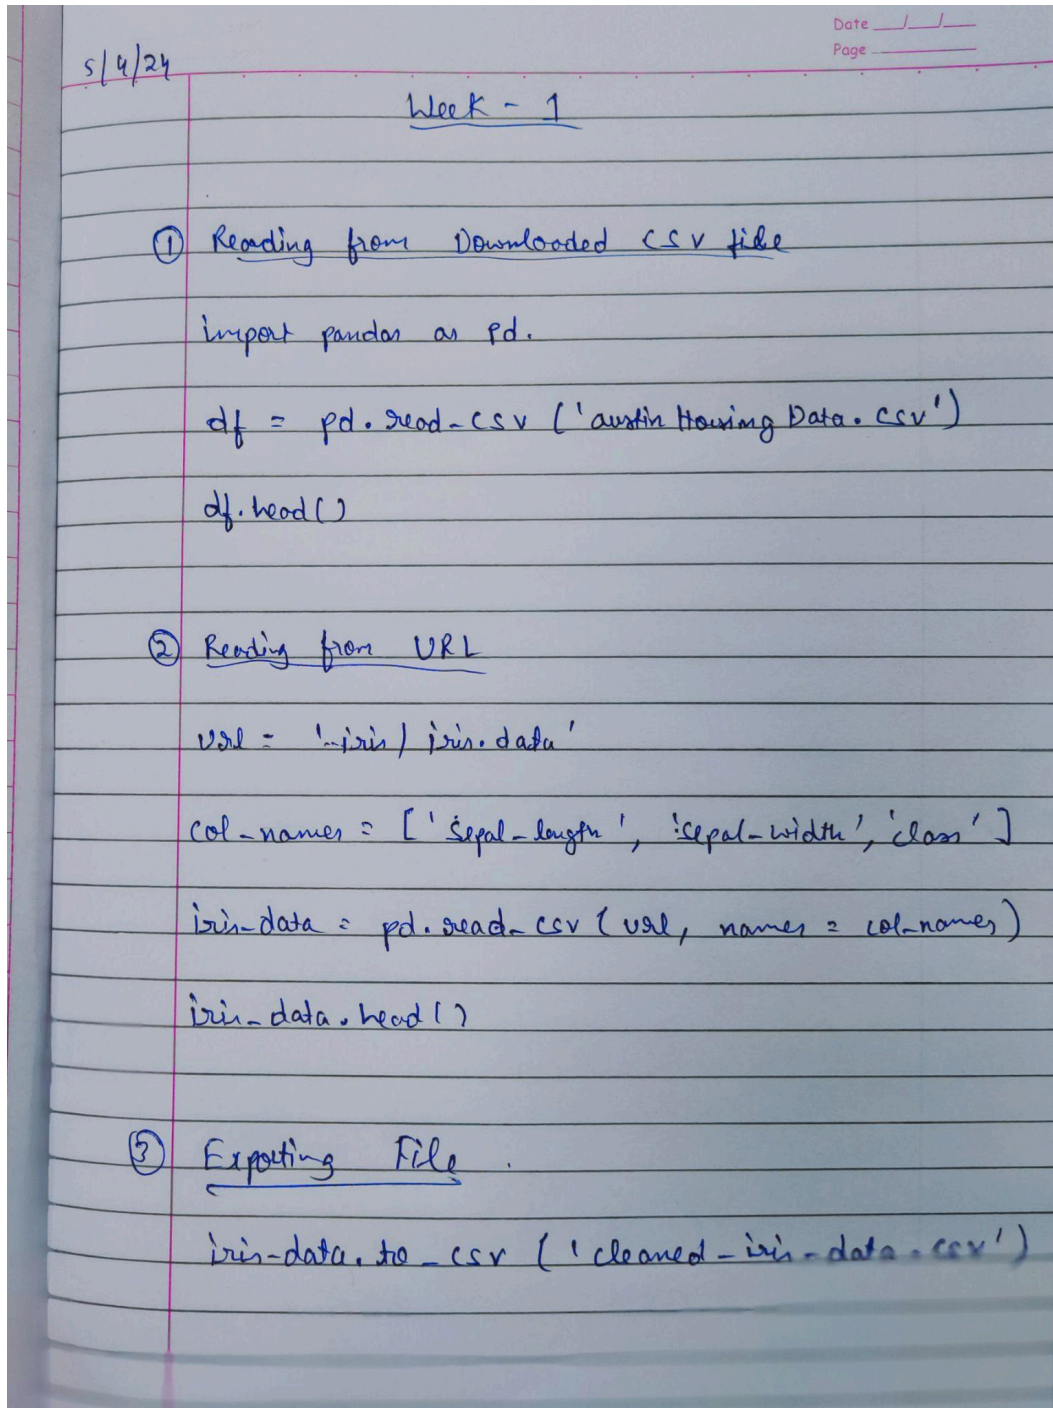 Date __/__/__
Page
5/4/24
Week - 1
① Reading from Downloaded CSV file
import pandas as pd.
df = pd.read_csv ('austin Housing Data.csv')
df.head()
② Reading from URL
url = '--iris/iris.data'
col_names = ['sepal_length', 'sepal_width', 'class']
iris_data = pd.read_csv (url, names = col_names)
iris_data.head()
③ Exporting File.
iris_data.to_csv ('cleaned_iris_data.csv')